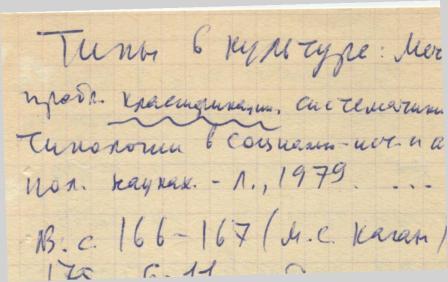 Типы в культуре: Мет
пробл. классификации, систематики
типологии в социальн-ист. и а
пол. науках. - Л., 1979. ...
NB. с. 166-167 (М.С. Каган)